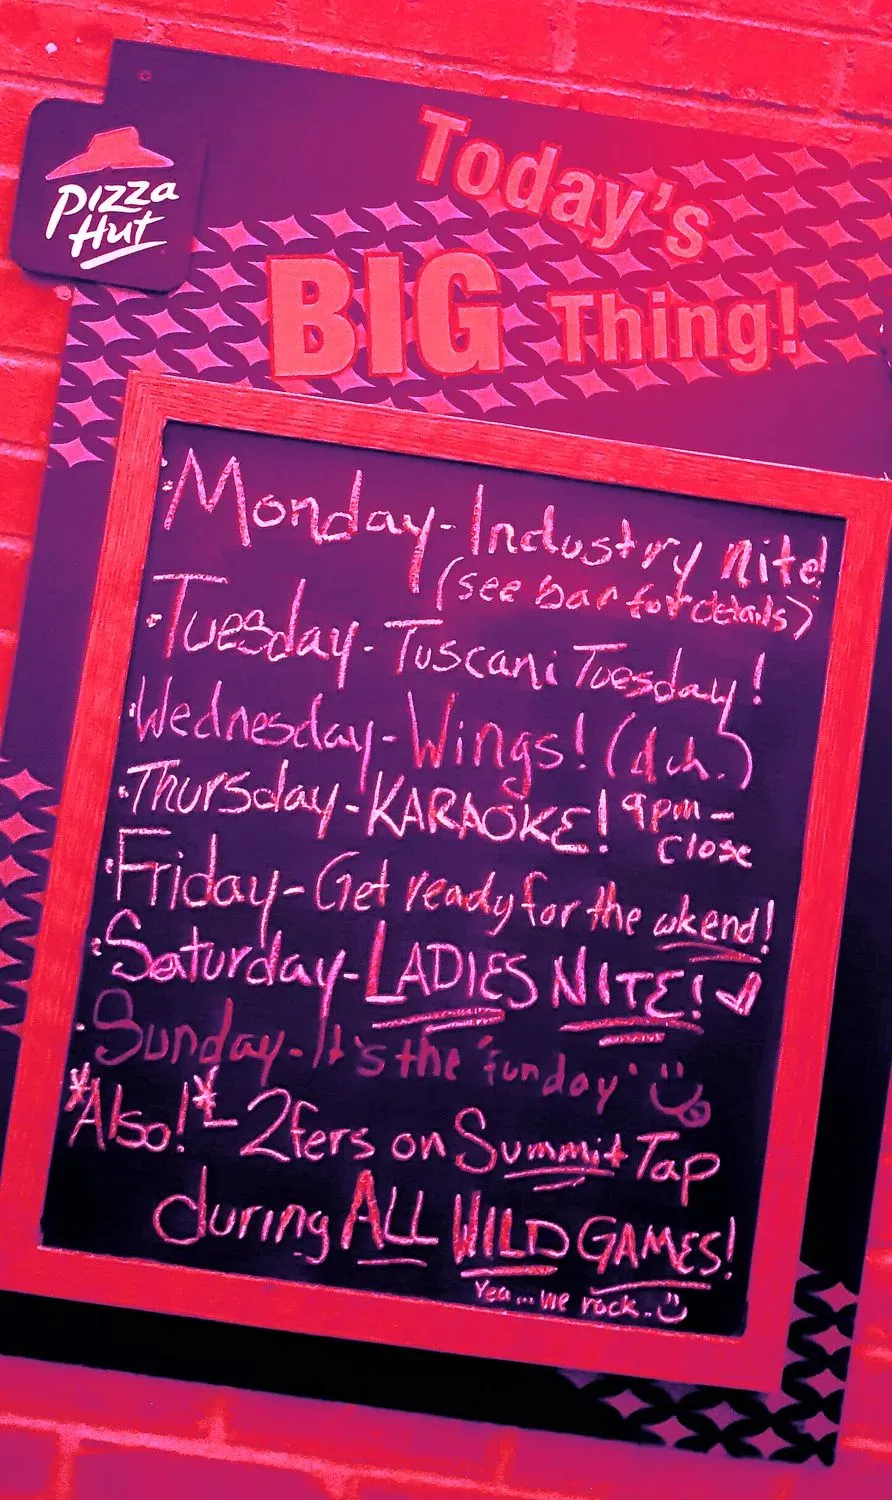 Pizza
Hut
Today's
BIG Thing!
• Monday - Industry nite!
(see bar for details)
• Tuesday - Tuscani Tuesday!
• Wednesday - Wings! (duh.)
• Thursday - KARAOKE! 9pm -
Close
• Friday - Get ready for the wkend!
• Saturday - LADIES NITE!
• Sunday - It's the "funday"
*Also!* - 2fers on Summit Tap
during ALL WILD GAMES!
Yea... we rock.